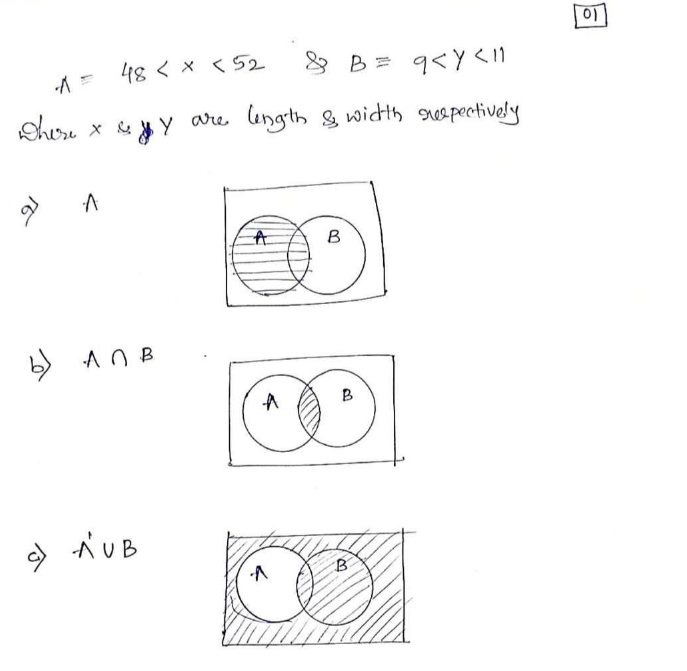 01
A = 48 < x < 52 & B = 9 < Y < 11
where x & Y are length & width respectively
a) A
A B
b) A ∩ B
A B
c) A' ∪ B
A B